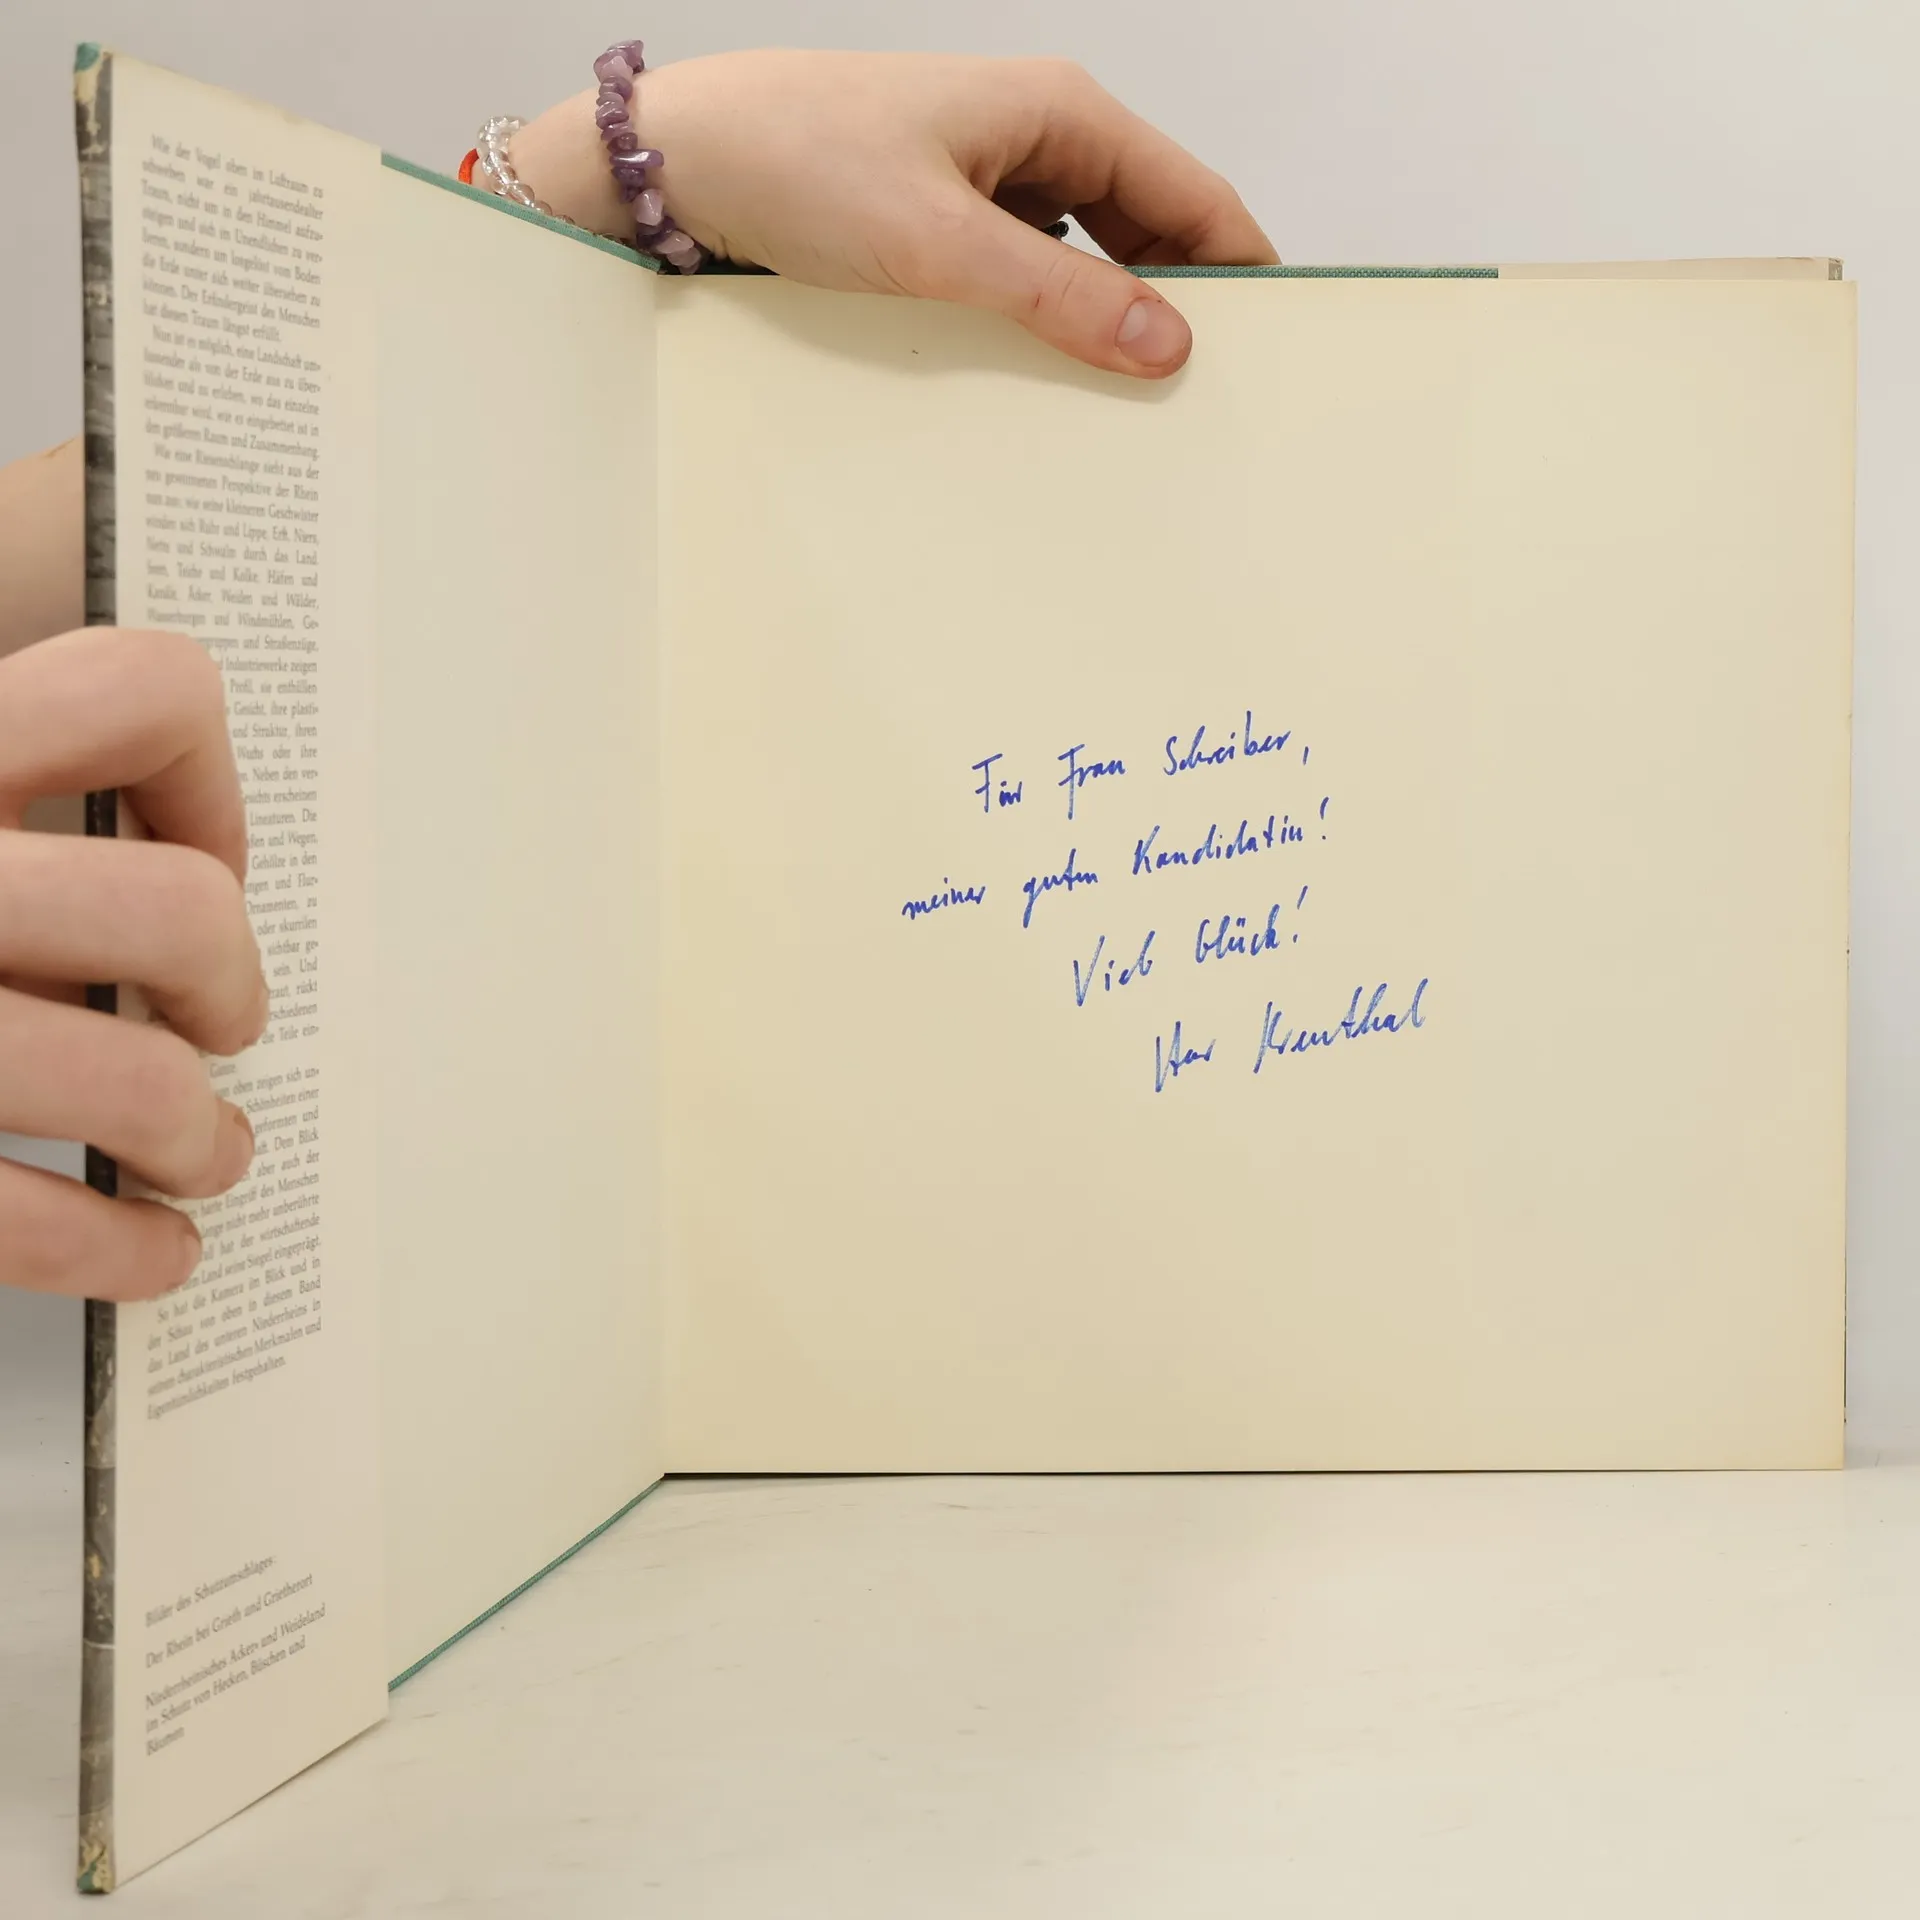 Wie der Vogel oben im Luftraum zu
schweben war ein jahrtausendealter
Traum, nicht um in den Himmel aufzu-
steigen und sich im Unendlichen zu ver-
lieren, sondern um losgelöst vom Boden
die Erde unter sich weiter übersehen zu
können. Der Erfindergeist des Menschen
hat diesen Traum längst erfüllt.
Nun ist es möglich, eine Landschaft um-
fassender als von der Erde aus zu über-
blicken und zu erleben, wo das einzelne
erkennbar wird, wie es eingebettet ist in
den größeren Raum und Zusammenhang.
Wie eine Riesenschlange sieht aus der
neu gewonnenen Perspektive der Rhein
nun aus; wie seine kleineren Geschwister
winden sich Ruhr und Lippe, Erft, Niers,
Nette und Schwalm durch das Land.
Seen, Teiche und Kolke, Häfen und
Kanäle, Äcker, Weiden und Wälder,
Wasserburgen und Windmühlen, Ge-
gruppen und Straßenzüge,
Industriewerke zeigen
Profil, sie enthüllen
Gesicht, ihre plasti-
und Struktur, ihren
Wuchs oder ihre
Neben den ver-
erscheinen
Lineaturen. Die
und Wegen,
Gehölze in den
und Flur-
Ornamenten, zu
oder skurrilen
sichtbar ge-
sein. Und
rückt
die Teile ein-
Ganze.
oben zeigen sich un-
Schönheiten einer
geformten und
Dem Blick
aber auch der
harte Eingriff des Menschen
lange nicht mehr unberührte
hat der wirtschaftende
dem Land seine Siegel eingeprägt.
So hat die Kamera im Blick und in
der Schau von oben in diesem Band
das Land des unteren Niederrheins in
seinen charakteristischen Merkmalen und
Eigentümlichkeiten festgehalten.
Bilder des Schutzumschlages:
Der Rhein bei Grieth und Grietherort
Niederrheinisches Acker- und Weideland
im Schutz von Hecken, Büschen und
Bäumen
Für Frau Schreiber,
meiner guten Kandidatin!
Viel Glück!